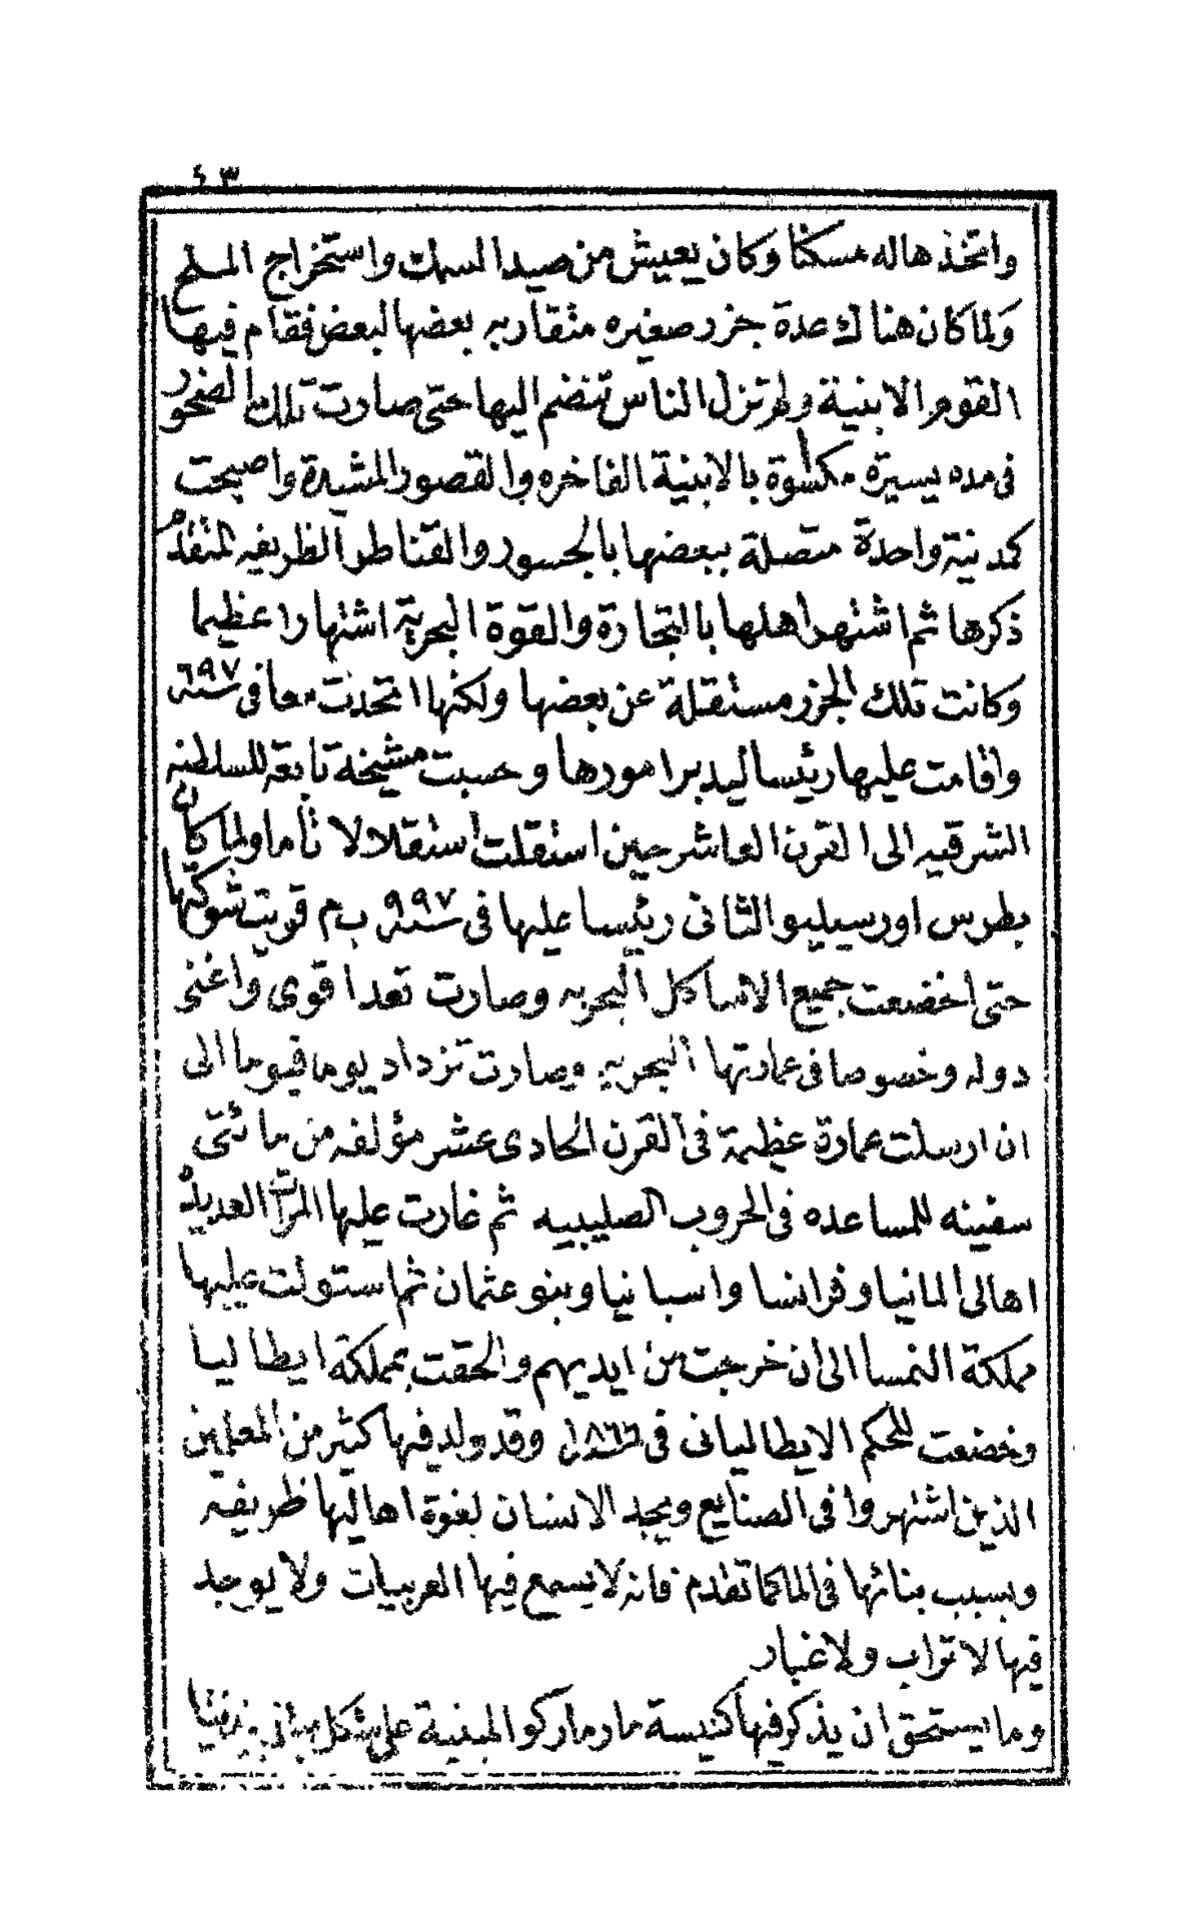 ٤٣
واتخذها له مسكنا وكان يعيش من صيد السمك واستخراج الملح
ولما كان هناك عدة جزر صغيره متقاربه بعضها لبعض فقام فيها
القوم الابنية ولم تزل الناس تنضم اليها حتى صارت تلك الصخور
فى مده يسيرة مكسوة بالابنية الفاخره والقصور المشيدة واصبحت
كمدينة واحدة متصلة ببعضها بالجسور والقناطر الظريفه المتقدم
ذكرها ثم اشتهر اهلها بالتجارة والقوة البحرية اشتهارا عظيما
وكانت تلك الجزر مستقلة عن بعضها ولكنها اتحدت معا فى سنة ٦٩٧
واقامت عليها رئيسا ليدبر امورها وحسبت مشيخة تابعة للسلطنه
الشرقيه الى القرن العاشر حين استقلت استقلالا تاما ولما كان
بطرس اورسيليو الثانى رئيسا عليها فى سنة ٩٩٧ ب م قويت شوكتها
حتى اخضعت جميع الاساكل البحريه وصارت تعد اقوى واغنى
دوله وخصوصا فى عمارتها البحريه وصارت تزداد يوما فيوما الى
ان ارسلت عمارة عظيمة فى القرن الحادى عشر مؤلفه من مائتى
سفينه للمساعده فى الحروب الصليبيه ثم غارت عليها المرات العديدة
اهالى المانيا وفرانسا واسبانيا وبنو عثمان ثم استولت عليها
مملكة النمسا الى ان خرجت من ايديهم والحقت بمملكة ايطاليا
وخضعت للحكم الايطاليانى فى سنة ١٨٦٦ وقد ولد فيها كثير من المعلمين
الذين اشتهروا فى الصنايع ويجد الانسان لغوة اهاليها ظريفه
وبسبب بنائها فى الماء كما تقدم فانه لا يسمع فيها العربيات ولا يوجد
فيها لا تراب ولا غبار
ومما يستحق ان يذكر فيها كنيسة مار ماركو المبنية على شكل